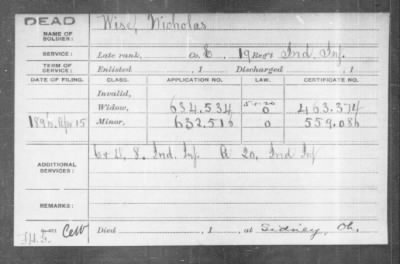 DEAD
NAME OF SOLDIER: Wise, Nicholas
SERVICE: Late rank, Co. E, 19 Reg't Ind. Inf.
TERM OF SERVICE: Enlisted , 1 Discharged , 1
DATE OF FILING. CLASS. APPLICATION NO. LAW. CERTIFICATE NO.
Invalid,
Widow, 634.534 0 463.374
1896 Apr 15 Minor, 632.516 0 559.086
ADDITIONAL SERVICES: 8. Ind. Inf. 20. Ind Inf
REMARKS:
Died , 1 , at Sidney, Oh.